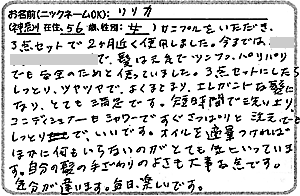 お名前(ニックネームOK): リリカ
(神奈川在住、56歳、性別:女) サンプルをいただき、
3点セットで2ヶ月近く使用しました。今までは、
で、髪は太めでツンツン、パリパリ
でも安全のためと使っていました。3点セットにしたら
しっとり、ツヤツヤで、まとまり、エレガントな髪に
なり、とても満足です。毎日短時間で洗い上り、
コンディショナーもシャワーですぐさっぱりと流せても
しっとりで、いいです。オイルを適量つければ
ほかに何もいらないのがとても気に入っていま
す。自分の髪の手ざわりのよさも大事な点です。
気分が違います。毎日、楽しいです。